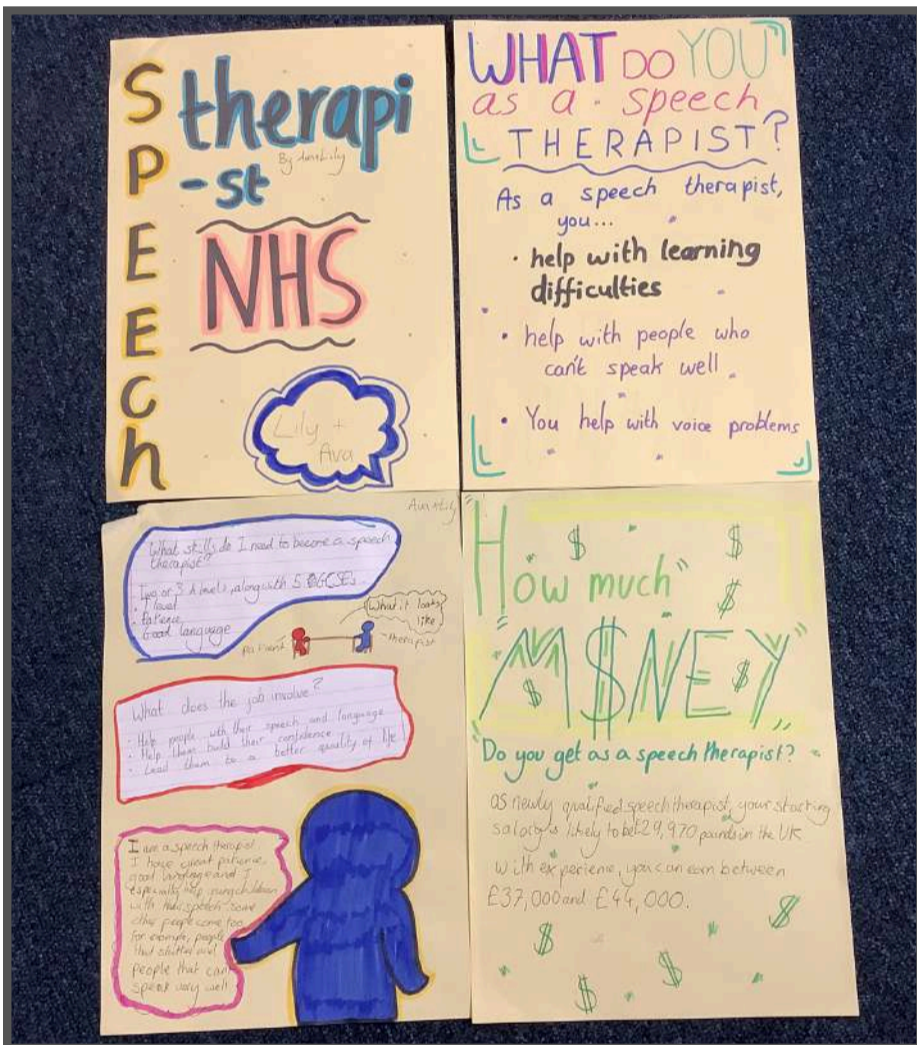 SPEECh
therapi
-st
By Ava+Lily
NHS
Lily +
Ava
WHAT DO YOU
as a speech
THERAPIST?
As a speech therapist,
you...
· help with learning
difficulties
· help with people who
can't speak well
· You help with voice problems
Ava+Lily
What skills do I need to become a speech
therapist?
Two or 3 A levels, along with 5 GCSEs
· Patience
· Good language
What it looks
like
patient
therapist
What does the job involve?
· Help people with their speech and language
· Help them build their confidence
· Lead them to a better quality of life
I am a speech therapist
I have great patience,
good language and I
especially help young children
with their speech some
other people come too,
for example, people
that stutter and
people that can
speak very well
"How much"
"M$NEY"
"Do you get as a speech therapist?
as newly qualified speech therapist, your starting
salary is likely to be £29,970 pounds in the UK
With experience, you can earn between
£37,000 and £44,000.